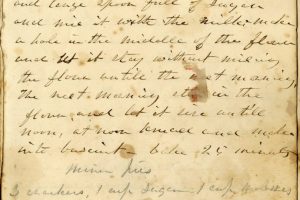 and large spoon full of Sugar
and mix it with the milk make
a hole in the middle of the flour
and let it stay without mixing
the flour untill the next morning
the next morning stir in the
flour and let it rise untill
noon, at noon knead and make
into biscuit - bake 25 minutes
Mince Pies
3 crackers, 1 cup Sugar 1 cup molasses